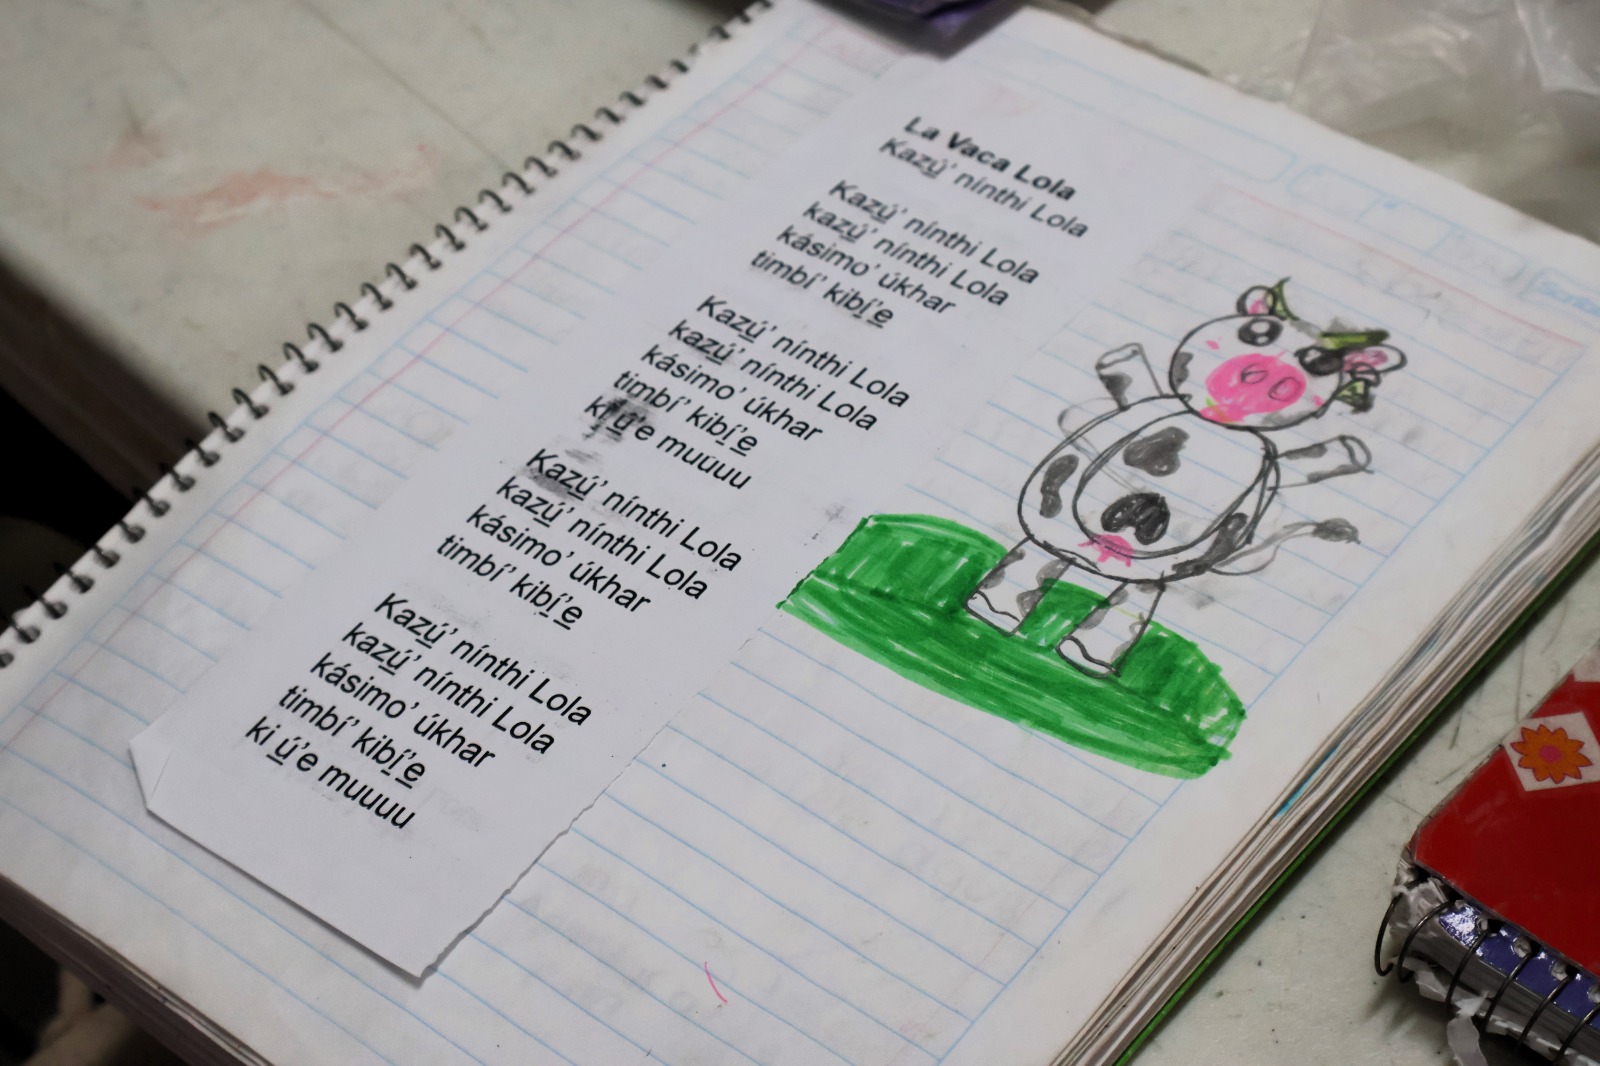 La Vaca Lola
Kazú̲' nínthi Lola
Kazú̲' nínthi Lola
kazú̲' nínthi Lola
kásimo' úkhar
timbí' kibí̲'e̲
Kazú̲' nínthi Lola
kazú̲' nínthi Lola
kásimo' úkhar
timbí' kibí̲'e̲
ki ú̲'e muuuu
Kazú̲' nínthi Lola
kazú̲' nínthi Lola
kásimo' úkhar
timbí' kibí̲'e̲
Kazú̲' nínthi Lola
kazú̲' nínthi Lola
kásimo' úkhar
timbí' kibí̲'e̲
ki ú̲'e muuuu